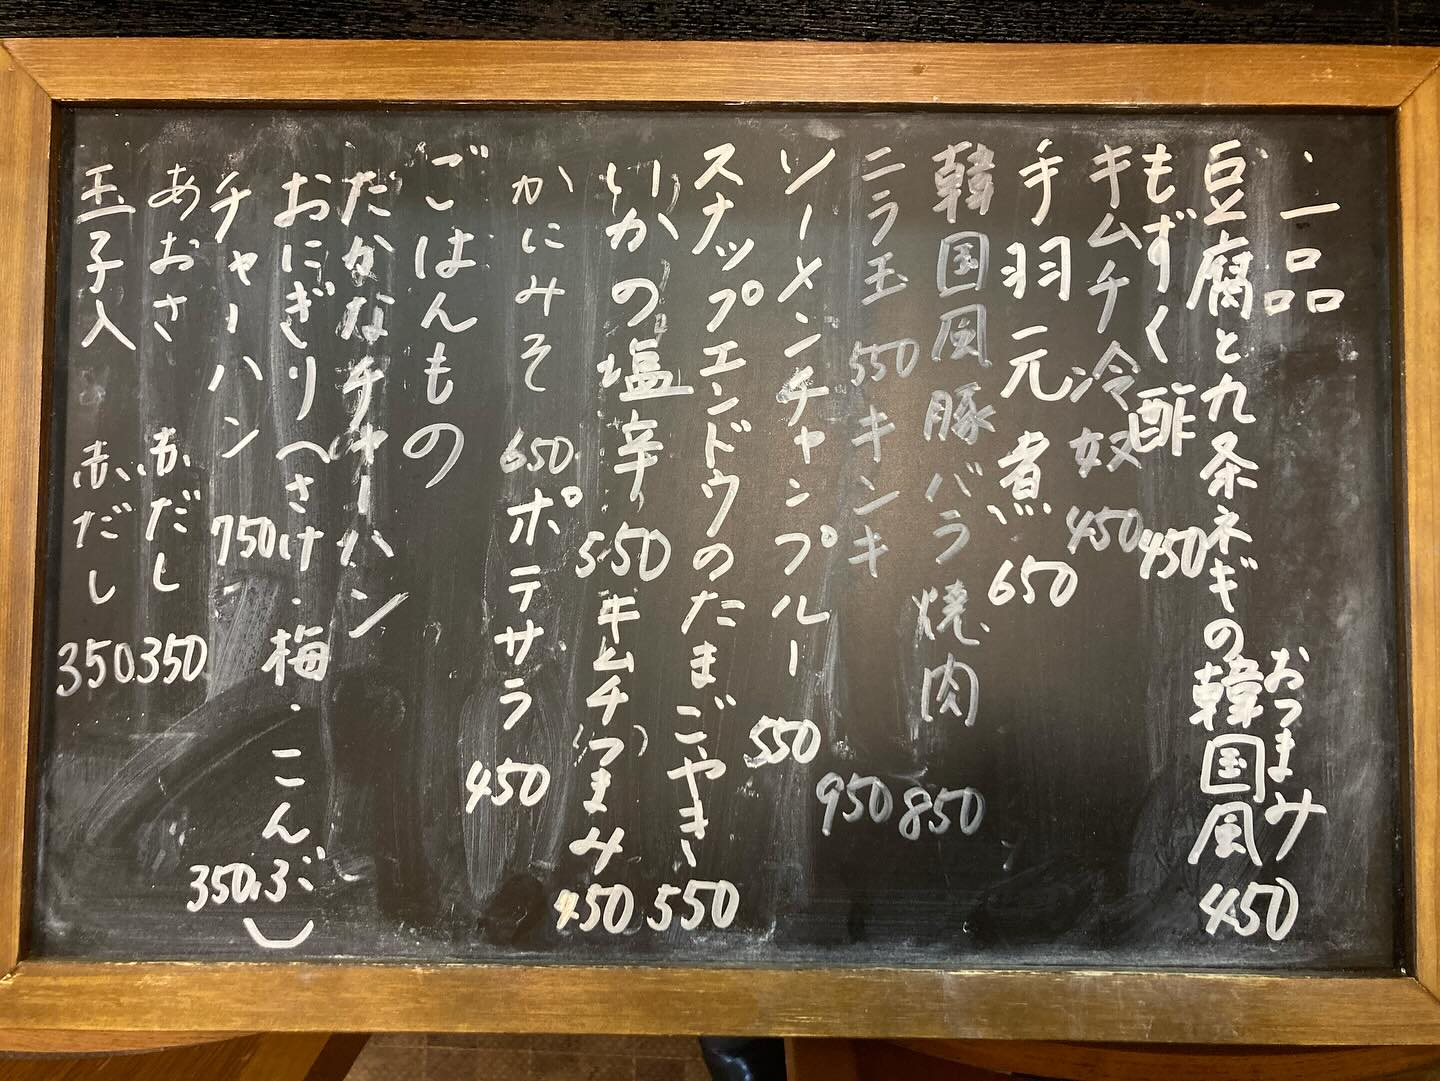 ・一品
おつまみ
豆腐と九条ネギの韓国風 450
もずく酢 450
キムチ冷奴 450
手羽元煮 650
韓国風豚バラ焼肉 850
ニラ玉 550 キンキ 950
ソーメンチャンプルー 550
スナップエンドウのたまごやき 550
いかの塩辛 550 キムチつまみ 450
かにみそ 650 ポテサラ 450
ごはんもの
たかなチャーハン
おにぎり(さけ・梅・こんぶ) 350
チャーハン 750
あおさ 赤だし 350
玉子入 赤だし 350